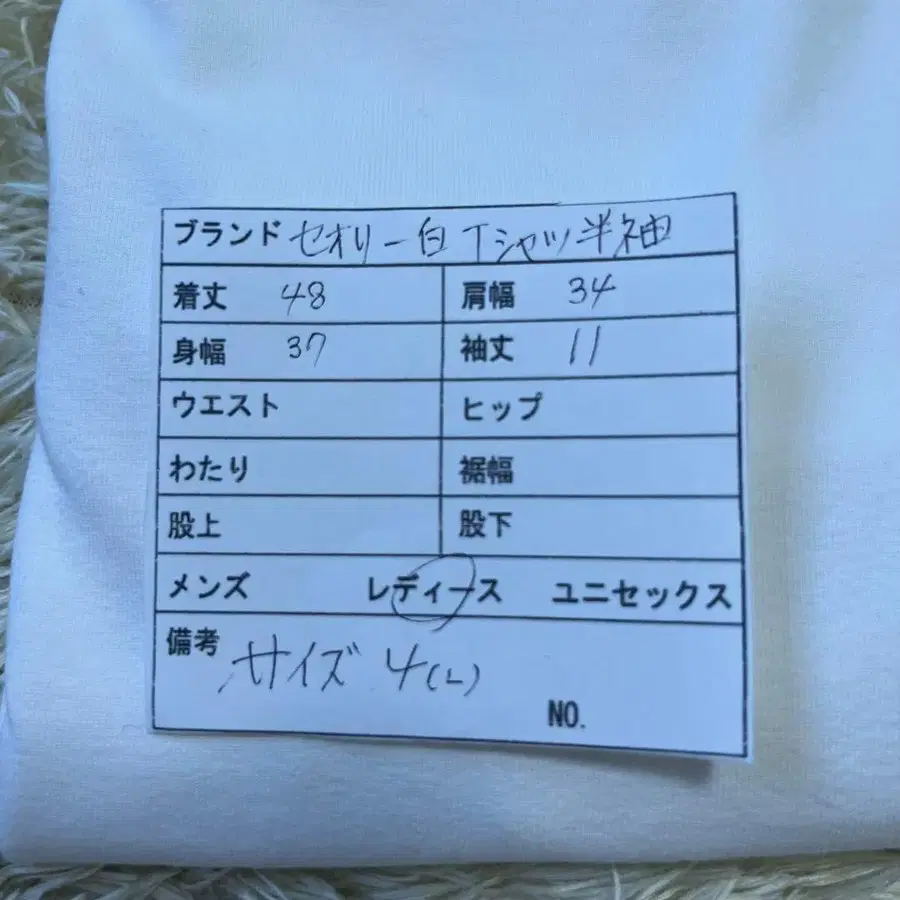 ブランド セオリー白Tシャツ半袖
着丈 48 肩幅 34
身幅 37 袖丈 11
ウエスト ヒップ
わたり 裾幅
股上 股下
メンズ レディース ユニセックス
備考 サイズ 4(L)
NO.